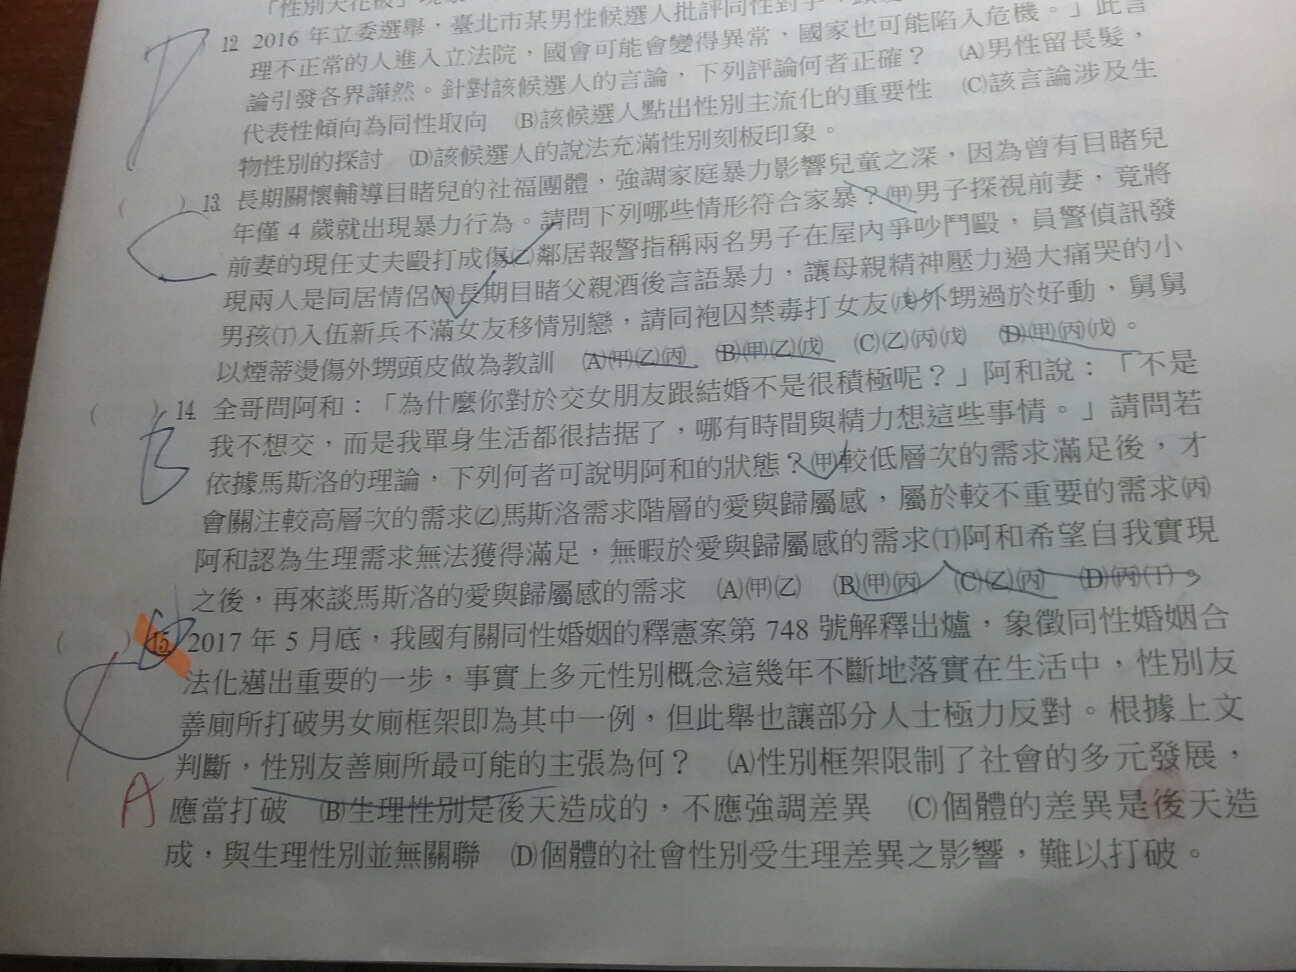 「性別天花板」現象
12 2016 年立委選舉，臺北市某男性候選人批評同性對手，
理不正常的人進入立法院，國會可能會變得異常，國家也可能陷入危機。」此言
論引發各界譁然。針對該候選人的言論，下列評論何者正確？ (A)男性留長髮，
代表性傾向為同性取向 (B)該候選人點出性別主流化的重要性 (C)該言論涉及生
物性別的探討 (D)該候選人的說法充滿性別刻板印象。
D
( ) 13 長期關懷輔導目睹兒的社福團體，強調家庭暴力影響兒童之深，因為曾有目睹兒
年僅 4 歲就出現暴力行為。請問下列哪些情形符合家暴？(甲)男子探視前妻，竟將
前妻的現任丈夫毆打成傷(乙)鄰居報警指稱兩名男子在屋內爭吵鬥毆，員警偵訊發
現兩人是同居情侶(丙)長期目睹父親酒後言語暴力，讓母親精神壓力過大痛哭的小
男孩(丁)入伍新兵不滿女友移情別戀，請同袍囚禁毒打女友(戊)外甥過於好動，舅舅
以煙蒂燙傷外甥頭皮做為教訓 (A)(甲)(乙)(丙) (B)(甲)(乙)(戊) (C)(乙)(丙)(戊) (D)(甲)(丙)(戊)。
C
( ) 14 全哥問阿和：「為什麼你對於交女朋友跟結婚不是很積極呢？」阿和說：「不是
我不想交，而是我單身生活都很拮据了，哪有時間與精力想這些事情。」請問若
依據馬斯洛的理論，下列何者可說明阿和的狀態？(甲)較低層次的需求滿足後，才
會關注較高層次的需求(乙)馬斯洛需求階層的愛與歸屬感，屬於較不重要的需求(丙)
阿和認為生理需求無法獲得滿足，無暇於愛與歸屬感的需求(丁)阿和希望自我實現
之後，再來談馬斯洛的愛與歸屬感的需求 (A)(甲)(乙) (B)(甲)(丙) (C)(乙)(丙) (D)(丙)(丁)。
B
( ) 15 2017 年 5 月底，我國有關同性婚姻的釋憲案第 748 號解釋出爐，象徵同性婚姻合
法化邁出重要的一步，事實上多元性別概念這幾年不斷地落實在生活中，性別友
善廁所打破男女廁框架即為其中一例，但此舉也讓部分人士極力反對。根據上文
判斷，性別友善廁所最可能的主張為何？ (A)性別框架限制了社會的多元發展，
應當打破 (B)生理性別是後天造成的，不應強調差異 (C)個體的差異是後天造
成，與生理性別並無關聯 (D)個體的社會性別受生理差異之影響，難以打破。
C
A